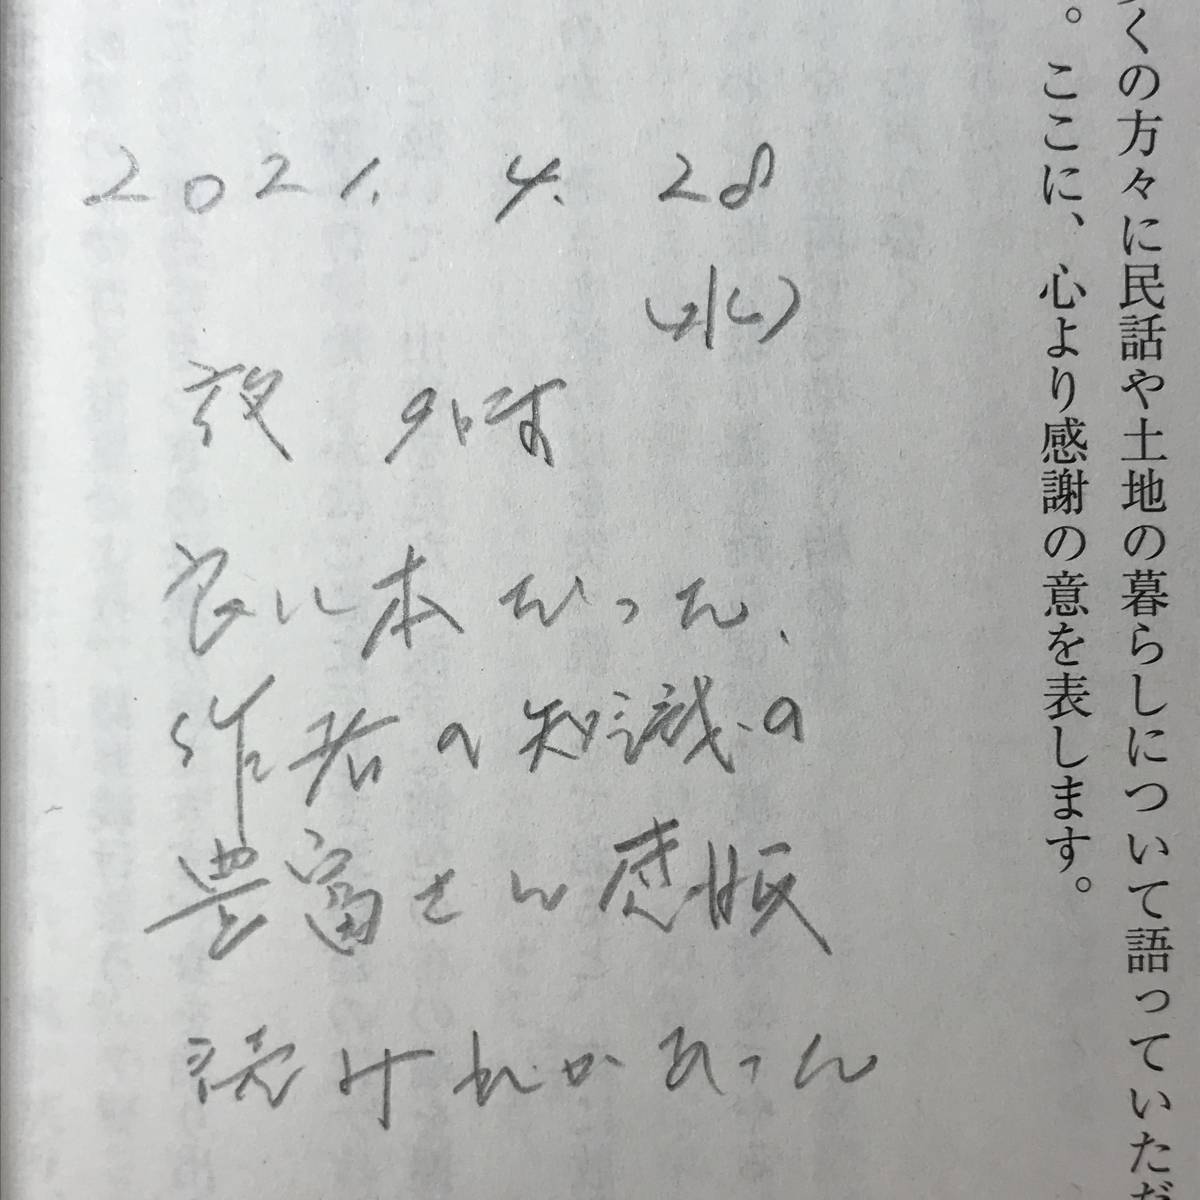 くの方々に民話や土地の暮らしについて語っていただ
。ここに、心より感謝の意を表します。
2021. 4. 28
(水)
時
良い本だった、
作者の知識の
豊富さに感服
読 あった